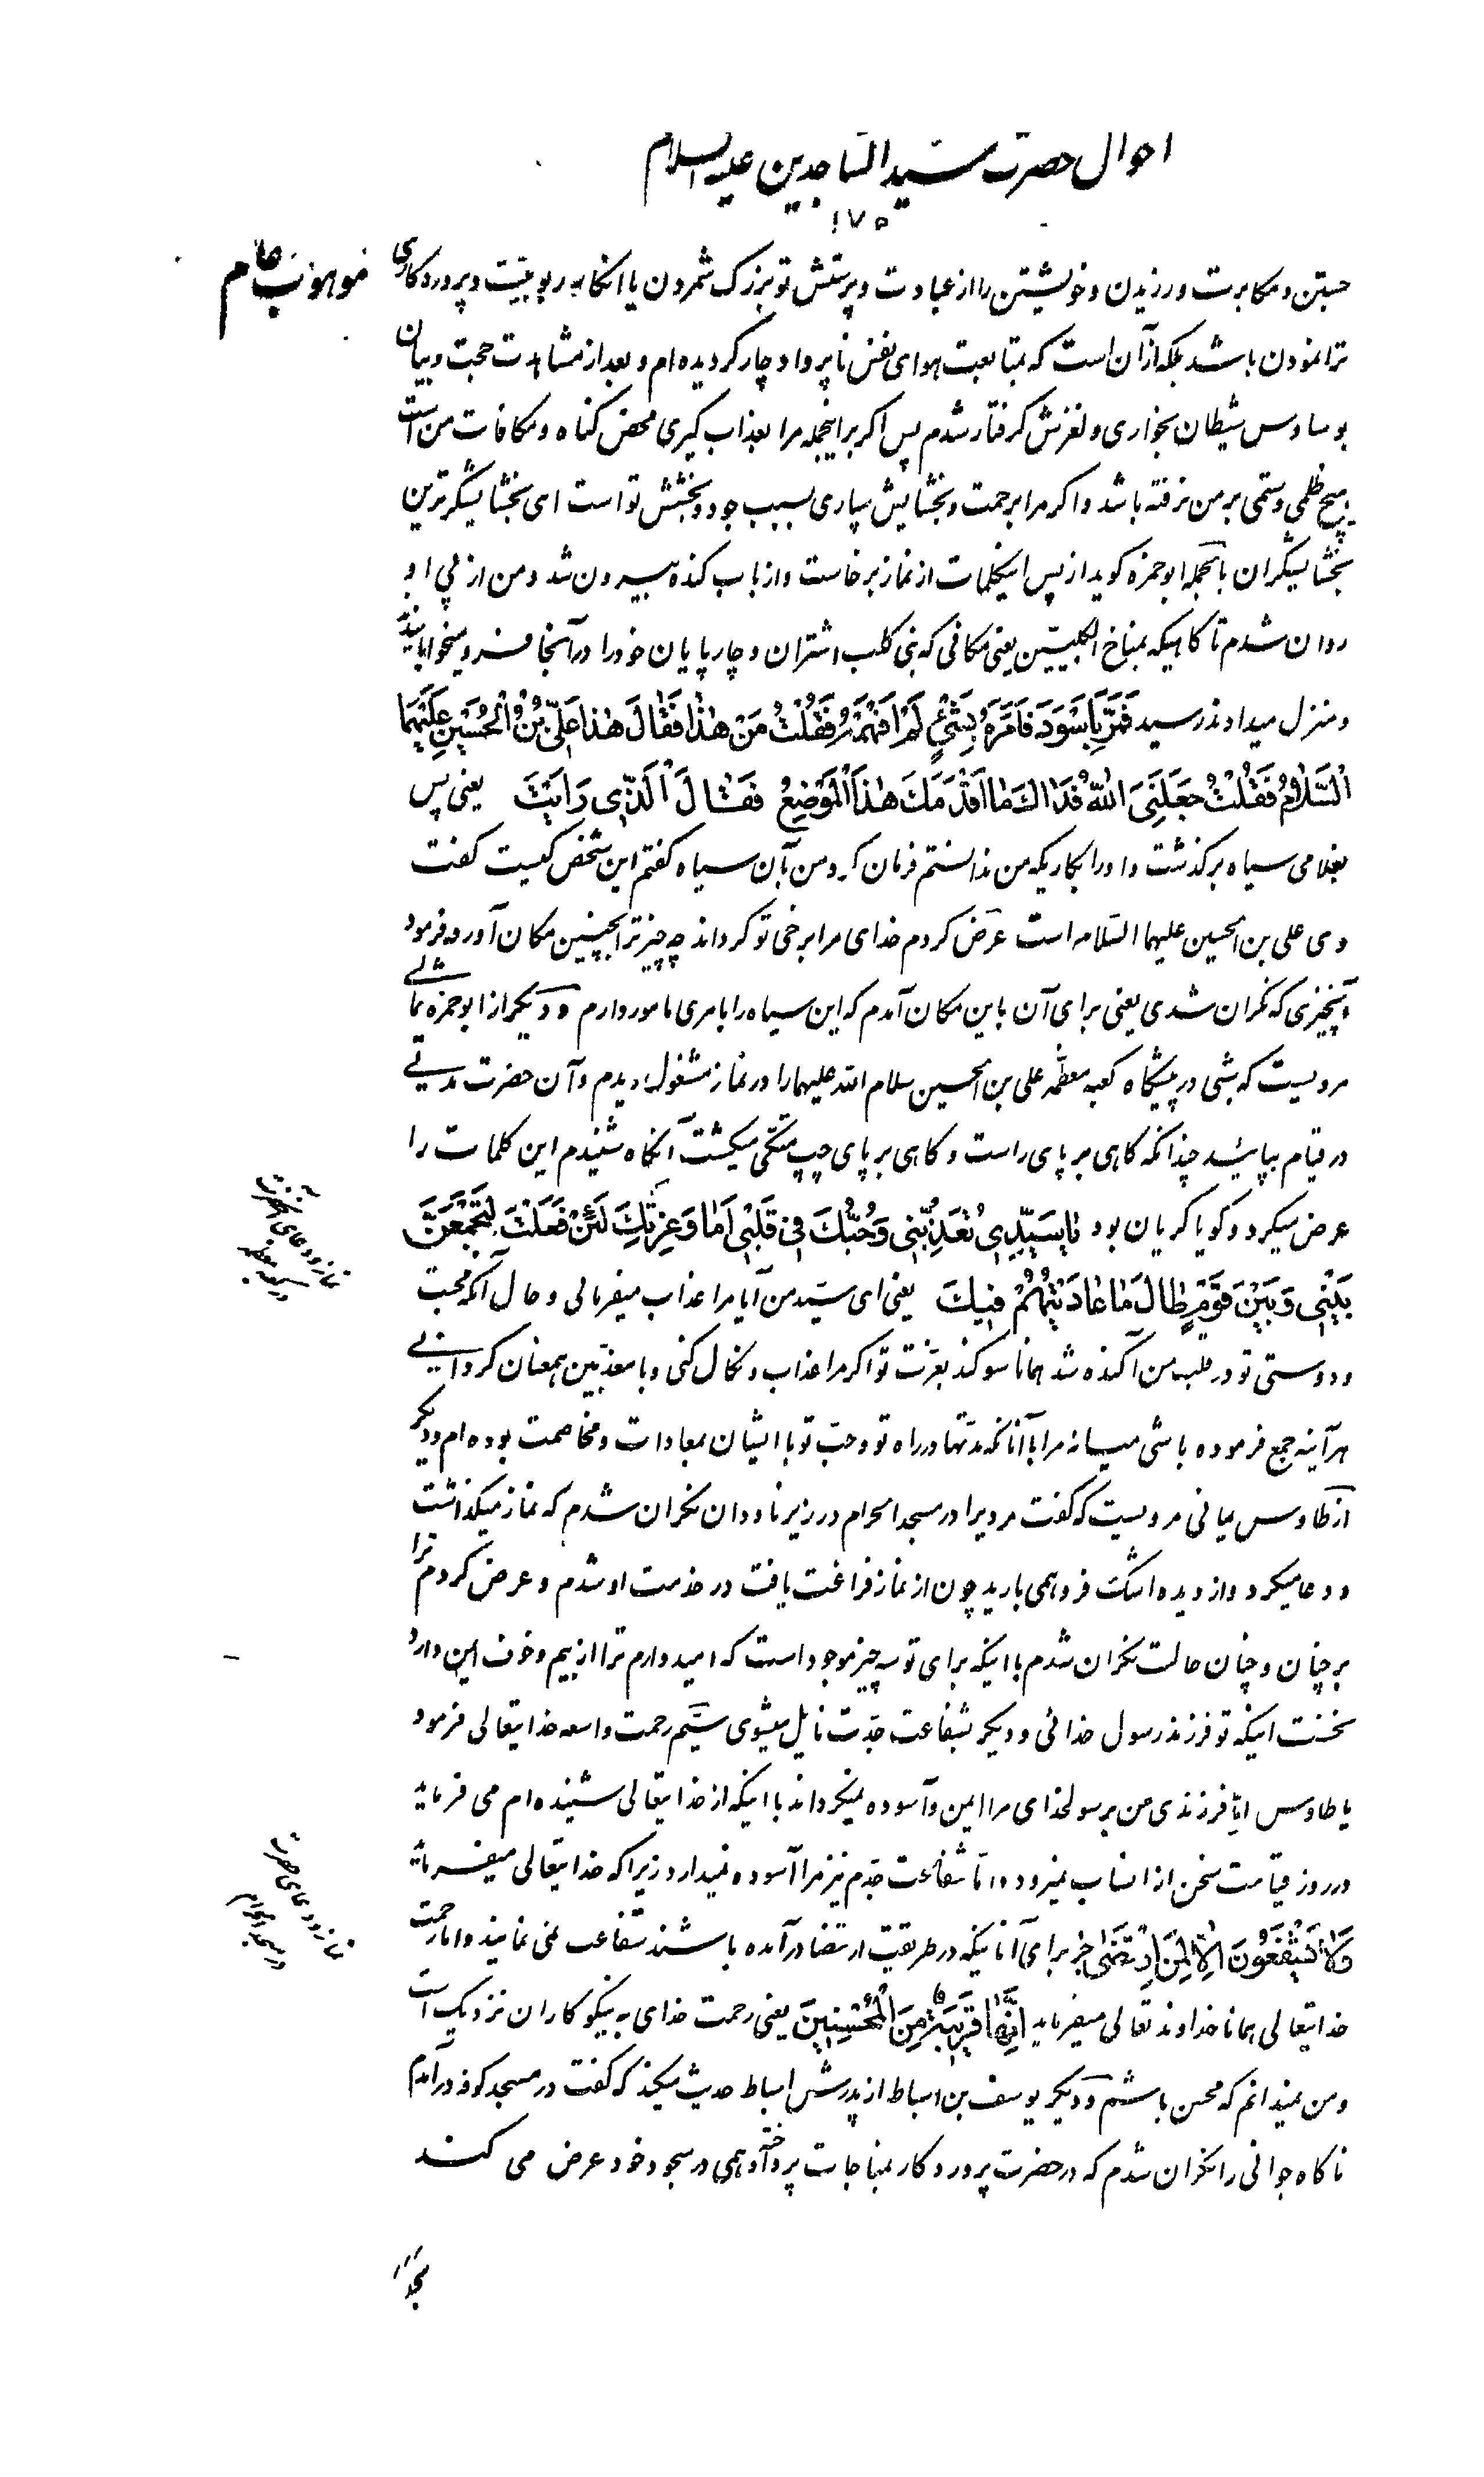 احوال حضرت سید الساجدین علیه السلام
١٧٥
جستن و مکابرت ورزیدن و خویشتن را از عبادت و پرستش تو بزرک شمردن یا انکار ربوبیّت و پروردکاری
ترا نمودن باشد بلکه از آن است که بمتابعت هوای نفس ناپروا دچار کردیده ام و بعد از مشاهدت حجت و بیان
بوساوس شیطان بخواری و لغزش کرفتار شدم پس اکر براینجمله مرا بعذاب کیری محض کناه و مکافات من است
هیچ ظلمی و ستمی بر من نرفته باشد و اکر مرا برحمت و بخشایش سپاری بسبب جود و بخشش تو است ای بخشایشکرترین
بخشایشکران بالجمله ابوحمزه کوید از پس اینکلمات از نماز برخاست و از باب کنده بیرون شد و من از پی او
روان شدم تا کاهیکه بمناخ الکلبیّین یعنی مکانی که بنی کلب اشتران و چارپایان خود را در آنجا فرو میخوابانیدند
و منزل میدادند رسید فَمَرَّ بِاَسْوَدَ فَاَمَرَهُ بِشَیْءٍ لَمْ اَفْهَمْهُ فَقُلْتُ مَنْ هٰذا فَقالَ هٰذا عَلِیُّ بْنُ الْحُسَیْنِ عَلَیْهِمَا
السَّلامُ فَقُلْتُ جَعَلَنِیَ اللّٰهُ فِداكَ ما اَقْدَمَكَ هٰذَا الْمَوْضِعَ فَقالَ الَّذی رَاَیْتَ یعنی پس
بغلامی سیاه برکذشت و او را بکاریکه من ندانستم فرمان کرد من بآن سیاه کفتم این شخص کیست کفت
وی علی بن الحسین علیهما السّلام است عرض کردم خدای مرا برخی تو کرداند چه چیز ترا بچنین مکان آورد فرمود
آنچیزی که نکران شدی یعنی برای آن باین مکان آمدم که این سیاه را بامری مامور دارم و دیکر از ابوحمزه ثمالی
مرویست که شبی در پیشکاه کعبه معظّمه علی بن الحسین سلام الله علیهما را در نماز مشغول دیدم و آن حضرت مدتی
در قیام بپائید چندانکه کاهی بر پای راست و کاهی بر پای چپ متکّی میکشت آنکاه شنیدم این کلمات را
عرض میکرد و کویا کریان بود یا سَیِّدی تُعَذِّبُنی وَحُبُّكَ فی قَلْبی اَما وَعِزَّتِكَ لَئِنْ فَعَلْتَ لَتَجْمَعَنَّ
بَیْنی وَبَیْنَ قَوْمٍ طالَ ما عادَیْتُهُمْ فیكَ یعنی ای سیّد من آیا مرا عذاب میفرمائی و حال آنکه محبت
و دوستی تو در قلب من آکنده شد همانا سوکند بعزّت تو اکر مرا عذاب و نکال کنی و با معذّبین همعنان کردانی
هر آینه جمع فرموده باشی میانه مرا با آنانکه مدتها در راه تو و حبّ تو با ایشان بمعادات و مخاصمت بوده ام و دیکر
از طاوس یمانی مرویست که کفت مردیرا در مسجد الحرام در زیر ناودان نکران شدم که نماز میکذاشت
و دعا میکرد و از دیده اشک فرو همی بارید چون از نماز فراغت یافت در خدمت او شدم و عرض کردم ترا
بر چنان و چنان حالت نکران شدم با اینکه برای تو سه چیز موجود است که امیدوارم ترا از بیم و خوف ایمن دارد
نخست اینکه تو فرزند رسول خدائی و دیکر بشفاعت جدّت نایل میشوی سیّم رحمت واسعه خدایتعالی فرمود
یا طاوس امّا فرزندی من برسولخدای مرا ایمن و آسوده نمیکرداند با اینکه از خدایتعالی شنیده ام می فرماید
در روز قیامت سخن از انساب نمیرود و امّا شفاعت جدّم نیز مرا آسوده نمیدارد زیرا که خدایتعالی میفرماید
وَلا یَشْفَعُونَ اِلاّ لِمَنِ ارْتَضٰی جز برای آنانیکه در طریقت ارتضا درآمده باشند شفاعت نمی نمایند و اما رحمت
خدایتعالی همانا خداوند تعالی میفرماید اِنَّها قَریبَةٌ مِنَ الْمُحْسِنینَ یعنی رحمت خدای به نیکوکاران نزدیک است
و من نمیدانم که محسن باشم و دیکر یوسف بن اسباط از پدرش اسباط حدیث میکند که کفت در مسجد کوفه درآمدم
ناکاه جوانی را نکران شدم که در حضرت پروردکار بمناجات پرداخته و همی در سجود خود عرض می کند
نماز و دعای آنحضرت
در کعبه معظمه
نماز و دعای حضرت
در مسجد الحرام
سجد